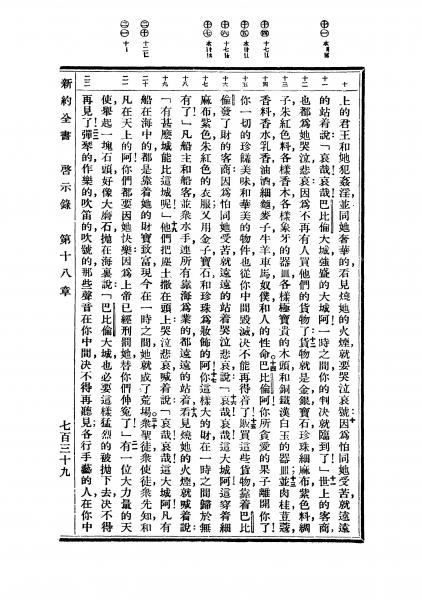 上的君王和她犯姦淫、並同她奢華的、看見燒她的火煙、就要哭泣哀號、因爲怕同她受苦、就遠遠
的站着說、「哀哉、哀哉、巴比倫大城、強盛的大城阿、一時之間、你的判決就臨到了！」世上的客商、
也都爲她哭泣悲哀、因爲不再有人買他們的貨物了、貨物就是金銀寶石、珍珠、細麻布、紫色料、綢
子、朱紅色料、各樣香木、各樣象牙的器皿、各樣極寶貴的木頭、和銅、鐵、漢白玉的器皿、並肉桂、荳蔻、
香料、香水、乳香、油、酒、細麵、麥子、牛、羊、車、馬、奴僕、和人的性命、巴比倫阿、你所貪愛的果子離開你了、
你一切的珍饈美味、和華美的物件、也從你中間毀滅、決不能再得着了！販買這些貨物、靠着巴比
倫發了財的客商、因爲怕同她受苦、就遠遠的站着哭泣悲哀說、「哀哉、哀哉、這大城阿、這穿着細
麻布、紫色朱紅色的衣服、又用金子、寶石、和珍珠爲妝飾的阿、你這樣大的財、在一時之間歸於無
有了！」凡船主和船客、並衆水手、連所有靠海爲業的、都遠遠的站着、看見燒她的火煙、就喊着說、
「有甚麽城能比這城呢！」他們把塵土撒在頭上、哭泣悲哀、喊着說、「哀哉、哀哉、這大城阿、凡有
船在海中的、都是靠着她的財寶致富、現今在一時之間她就成了荒場、衆聖徒、衆使徒、衆先知、和
凡在天上的阿、你們都要因她快樂、因爲上帝已經刑罰她、替你們伸寃了！」有一位大力量的天
使舉起一塊石頭、好像大磨石、拋在海裏、說、「巴比倫大城也必要這樣猛烈的被拋下去、決不得
再見了、彈琴的、作樂的、吹笛的、吹號的、那些聲音、在你中間決不得再聽見、各行手藝的人、在你中
新約全書 啓示錄 第十八章 七百三十九